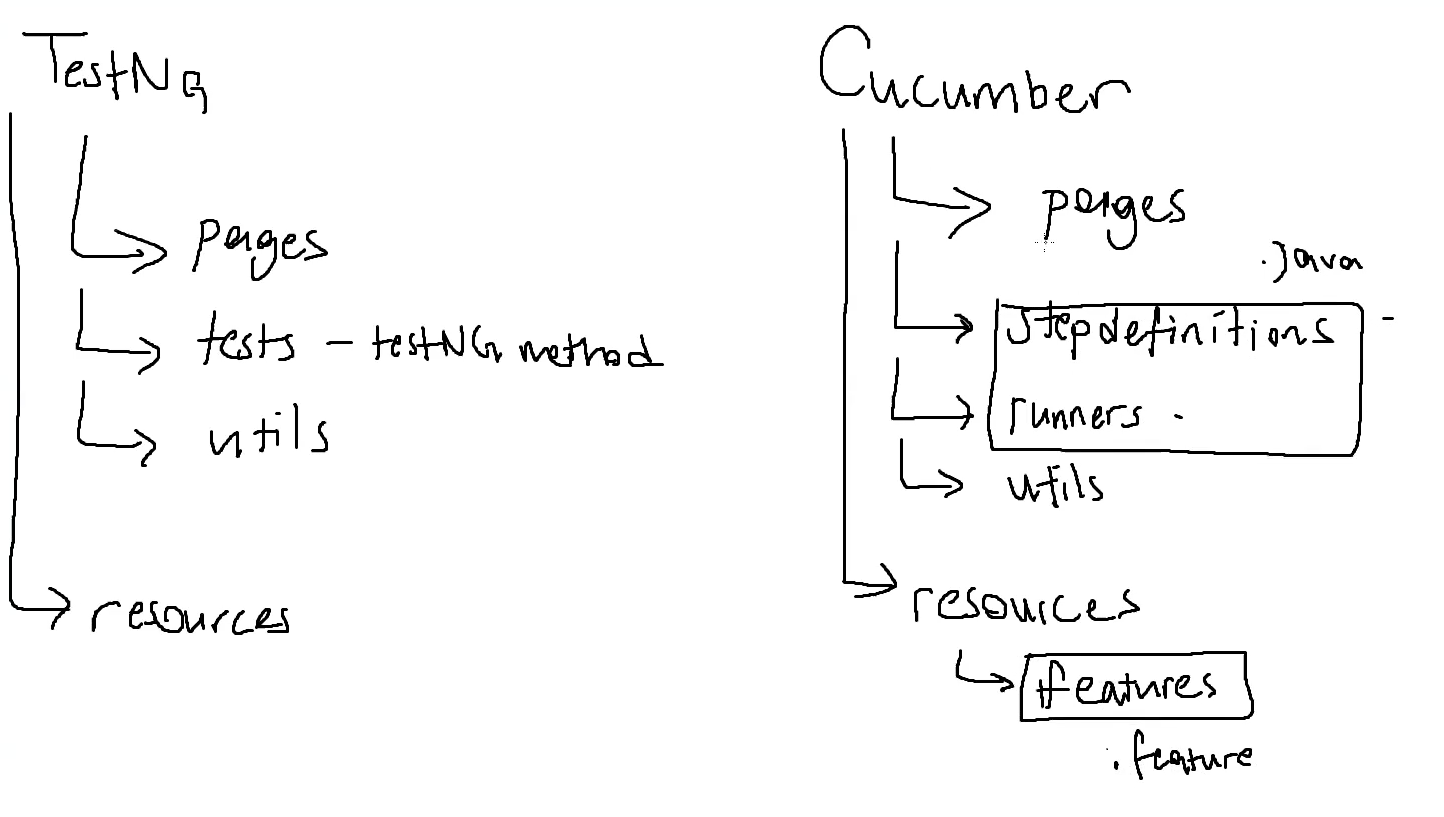 TestNG
pages
tests - testNG method
utils
resources
Cucumber
pages
.java
stepdefinitions -
runners -
utils
resources
features
.feature